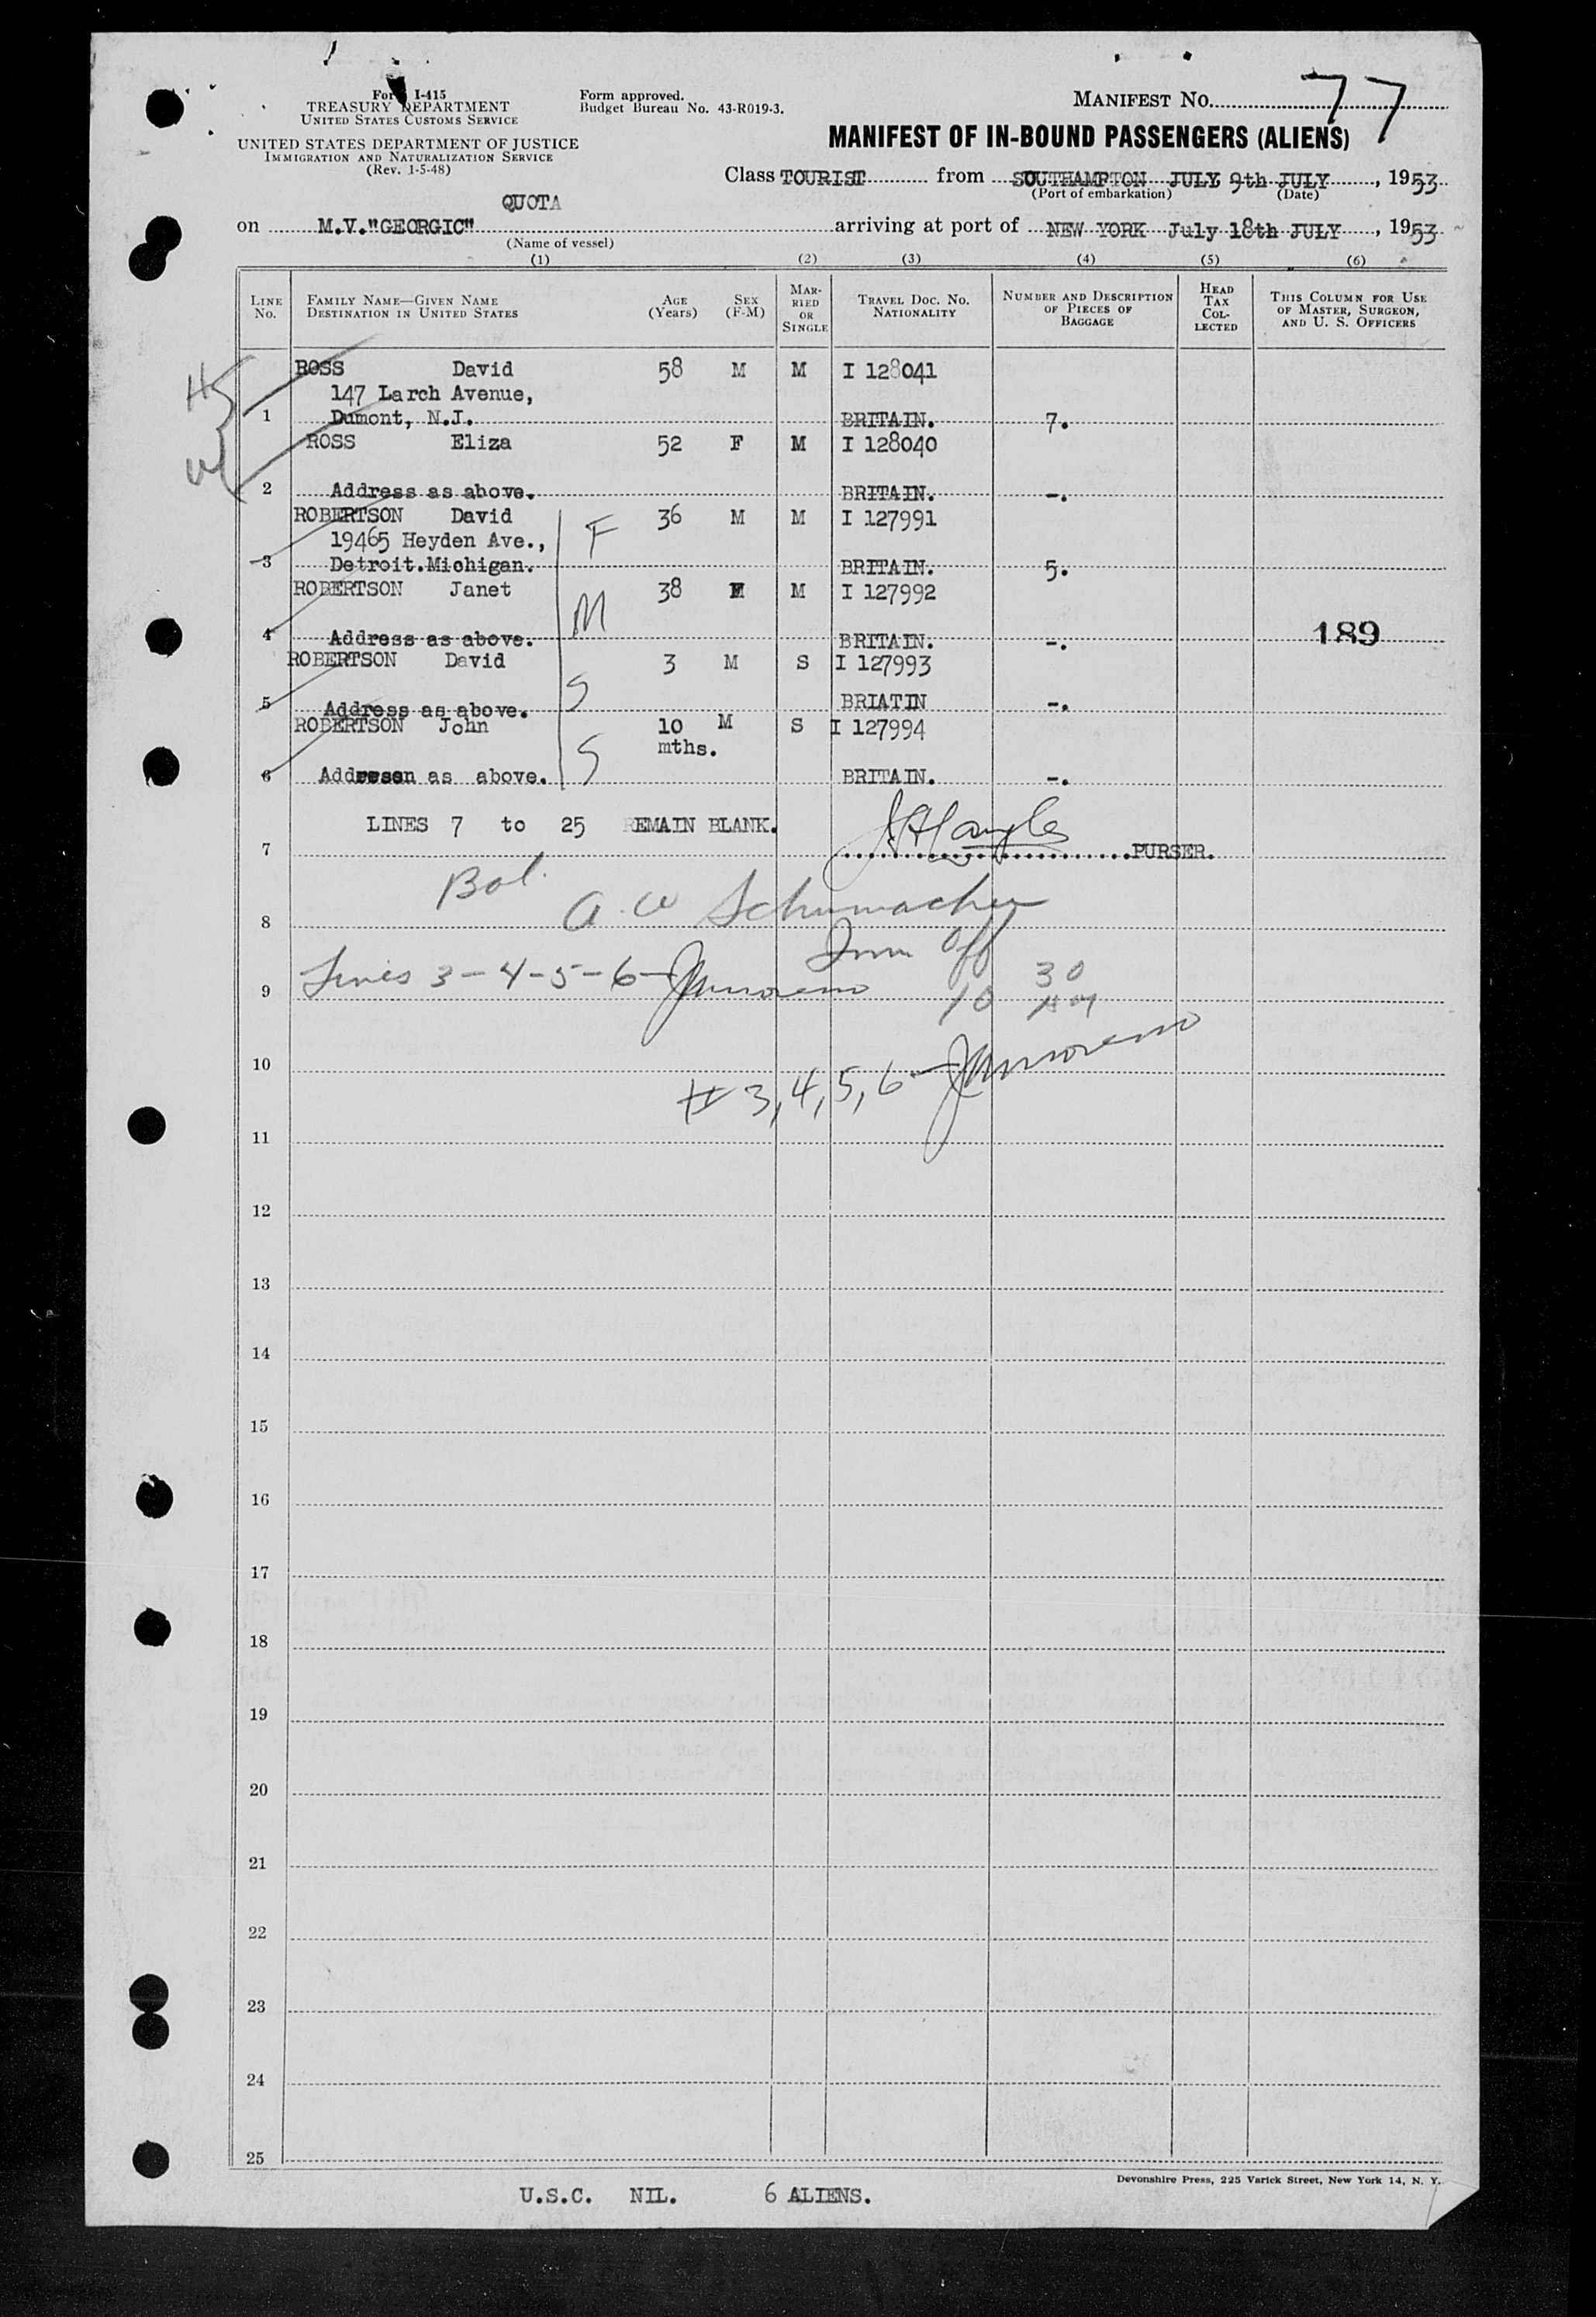 Form I-415
TREASURY DEPARTMENT
UNITED STATES CUSTOMS SERVICE
UNITED STATES DEPARTMENT OF JUSTICE
IMMIGRATION AND NATURALIZATION SERVICE
(Rev. 1-5-48)
Form approved.
Budget Bureau No. 43-R019-3.
MANIFEST NO. 77
MANIFEST OF IN-BOUND PASSENGERS (ALIENS)
Class TOURIST from SOUTHAMPTON JULY 9th JULY, 1953
(Port of embarkation) (Date)
QUOTA
on M.V."GEORGIC" arriving at port of NEW YORK July 18th JULY, 1953
(Name of vessel)
(1) (2) (3) (4) (5) (6)
LINE No. FAMILY NAME—GIVEN NAME DESTINATION IN UNITED STATES AGE (Years) SEX (F-M) MARRIED OR SINGLE TRAVEL DOC. NO. NATIONALITY NUMBER AND DESCRIPTION OF PIECES OF BAGGAGE HEAD TAX COLLECTED THIS COLUMN FOR USE OF MASTER, SURGEON, AND U. S. OFFICERS
ROSS David 58 M M I 128041
147 Larch Avenue,
1 Dumont, N.J. BRITAIN. 7.
ROSS Eliza 52 F M I 128040
2 Address as above. BRITAIN. -.
ROBERTSON David 36 M M I 127991
19465 Heyden Ave., F
3 Detroit.Michigan. BRITAIN. 5.
ROBERTSON Janet 38 F M I 127992
M
4 Address as above. BRITAIN. -. 189
ROBERTSON David 3 M S I 127993
S
5 Address as above. BRIATIN -.
ROBERTSON John 10 mths. M S I 127994
S
6 Addresen as above. BRITAIN. -.
LINES 7 to 25 REMAIN BLANK.
7 PURSER.
Bol.
8 A. W Schumacher
Imm Off
9 Lines 3-4-5-6-
30
10
10
# 3,4,5,6-
11
12
13
14
15
16
17
18
19
20
21
22
23
24
25
Devonshire Press, 225 Varick Street, New York 14, N. Y.
U.S.C. NIL. 6 ALIENS.